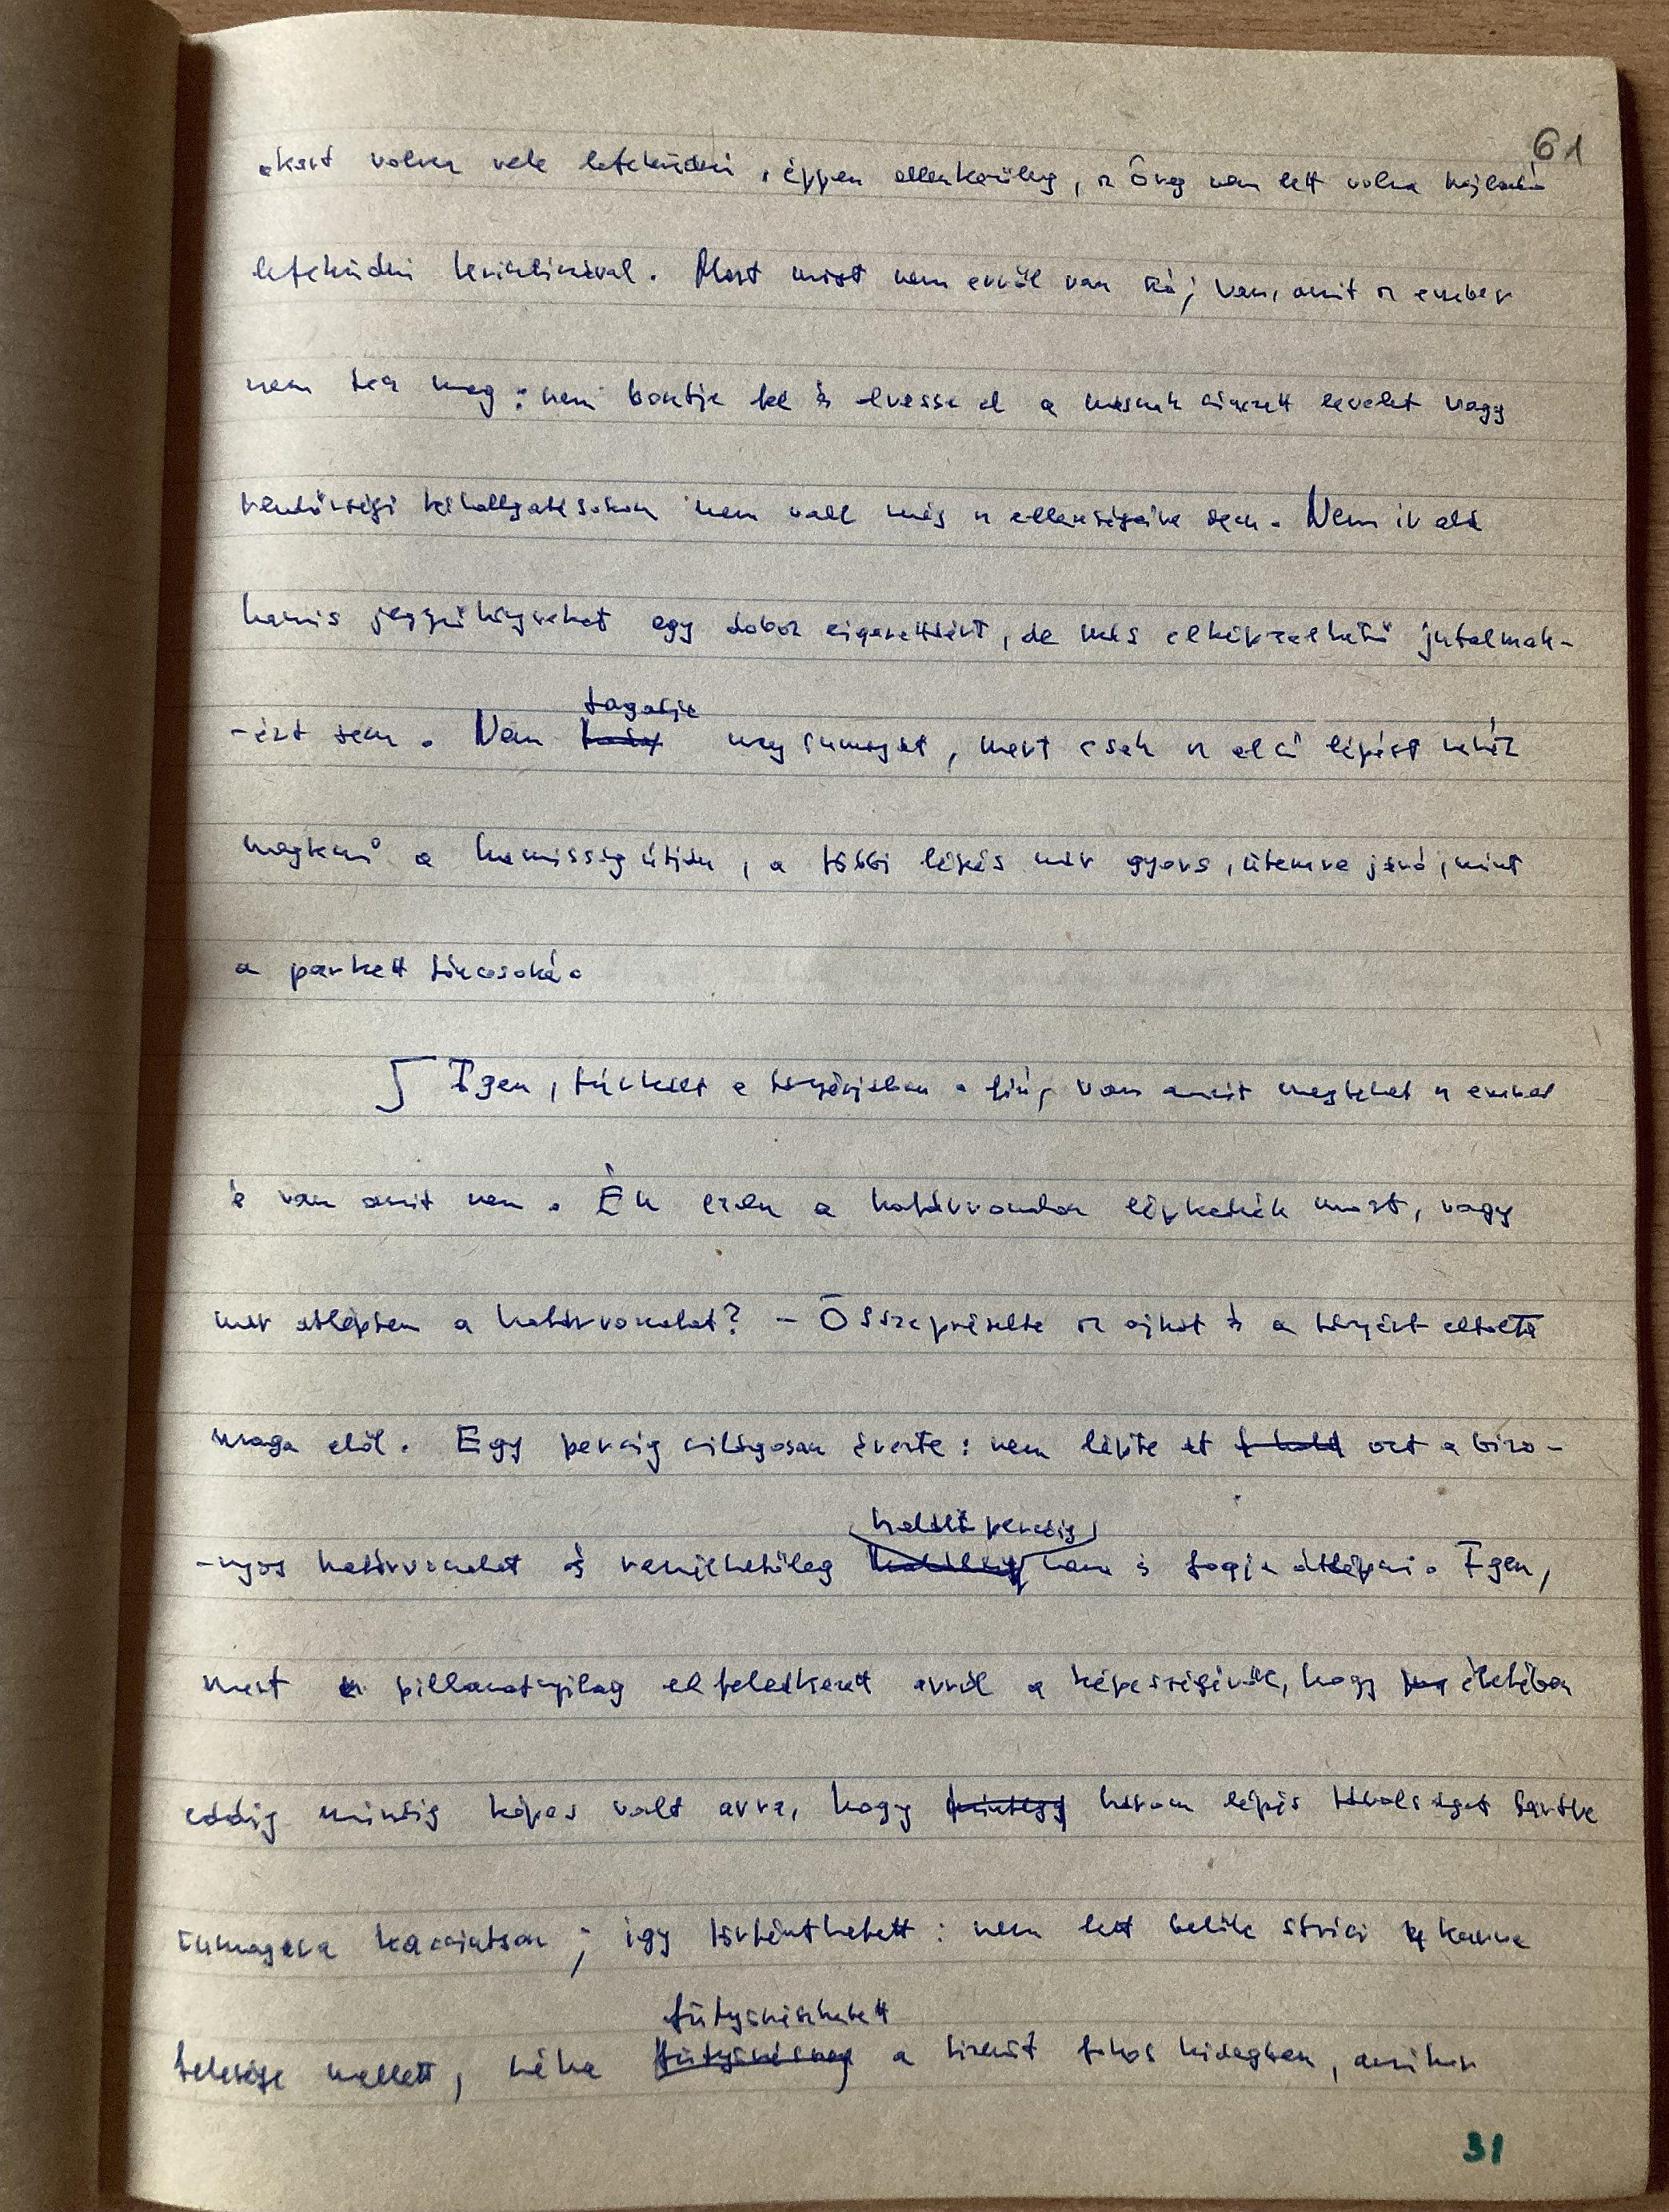 61
akart volna vele lefeküdni, éppen ellenkezőleg, az Öreg nem lett volna hajlandó
lefeküdni        . Most mist nem erről van szó; van, amit az ember
nem tesz meg: nem bontja fel és olvassa el a másnak címzett levelet vagy
rendőrségi kihallgatásokon nem vall még az ellenségeire sem. Nem ír alá
hamis jegyzőkönyveket egy doboz cigarettáért, de más elképzelhető jutalmak-
-ért sem. Nem tagadja meg önmagát, mert csak az első lépést nehéz
megtenni a hamisság útján, a többi lépés már gyors, ütemre járó, mint
a parkett táncosoké.
Igen, tűrkelt a tányérjában a fiú, van amit megtehet az ember
és van amit nem. Én ezen a határvonalon lépkedek most, vagy
már átléptem a határvonalat? - Összepréselte az ajkát és a tányért eltolta
maga elől. Egy percig világosan érezte: nem lépte át ezt a bizo-
-nyos határvonalat és remélhetőleg halála percéig nem is fogja átlépni. Igen,
mert pillanatnyilag elfeledkezett arról a képességéről, hogy életében
eddig mindig képes volt arra, hogy három lépés távolságot tartva
önmagára kacsintson; így történhetett: nem lett belőle strici
felesége mellett, néha fütyörészhetett a       fokos hidegben, amikor
31